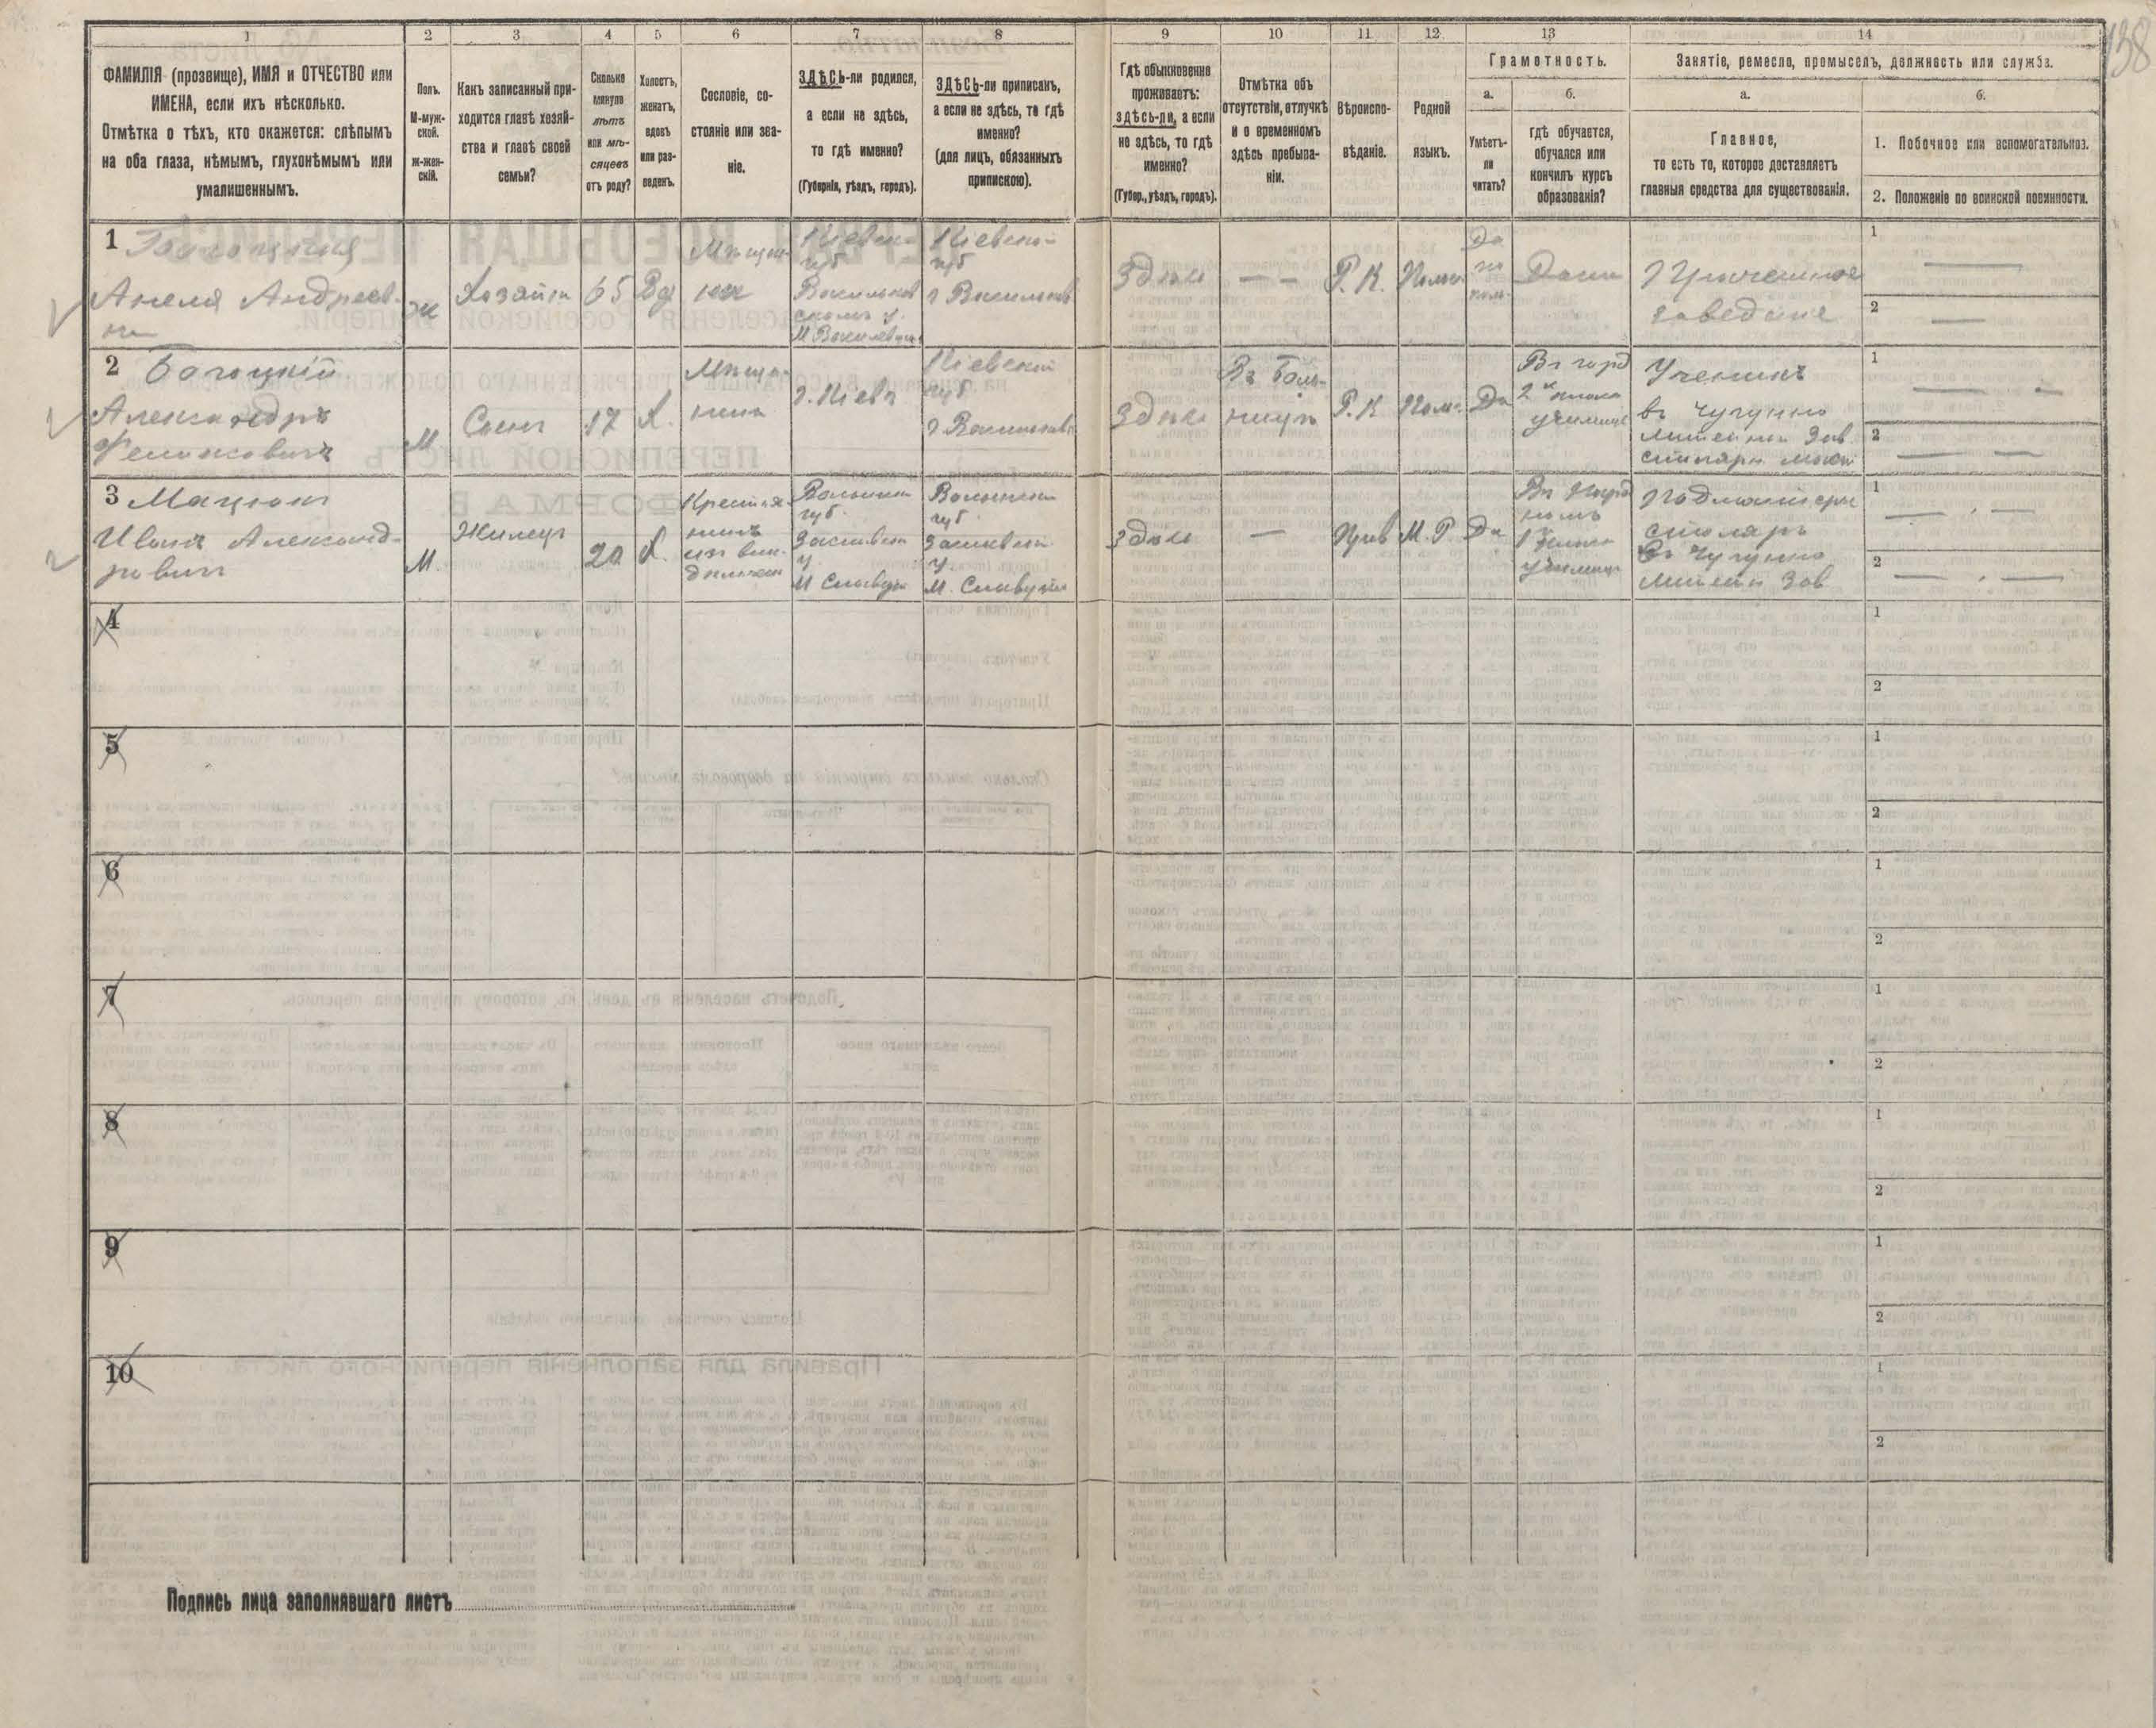 138
1
2
3
4
5
6
7
8
9
10
11
12
13
14
ФАМИЛІЯ (прозвище), ИМЯ и ОТЧЕСТВО или
ИМЕНА, если ихъ нѣсколько.
Отмѣтка о тѣхъ, кто окажется: слѣпымъ
на оба глаза, нѣмымъ, глухонѣмымъ или
умалишеннымъ.
Полъ.
М-муж-
ской.
Ж-жен-
скій.
Какъ записанный при-
ходится главѣ хозяй-
ства и главѣ своей
семьи?
Сколько
минуло
лѣтъ
или мѣ-
сяцевъ
отъ роду?
Холостъ,
женатъ,
вдовъ
или раз-
веденъ.
Сословіе, со-
стояніе или зва-
ніе.
ЗДѢСЬ-ли родился,
а если не здѣсь,
то гдѣ именно?
(Губернія, уѣздъ, городъ).
ЗДѢСЬ-ли приписанъ,
а если не здѣсь, то гдѣ
именно?
(для лицъ, обязанныхъ
припискою).
Гдѣ обыкновенно
проживаетъ:
здѣсь-ли, а если
не здѣсь, то гдѣ
именно?
(Губер., уѣздъ, городъ).
Отмѣтка объ
отсутствіи, отлучкѣ
и о временномъ
здѣсь пребыва-
ніи.
Вѣроиспо-
вѣданіе.
Родной
языкъ.
Грамотность.
а.
б.
Умѣетъ-
ли
читать?
гдѣ обучается,
обучался или
кончилъ курсъ
образованія?
Занятіе, ремесло, промыселъ, должность или служба.
а.
б.
Главное,
то есть то, которое доставляетъ
главныя средства для существованія.
1. Побочное или вспомогательное.
2. Положеніе по воинской повинности.
1
Анеля Андреев-
на
ж
Хозяйка
65
Вд
Кіевск-
губ
Кіевско-
губ
г Васильковъ
Здѣсь
— —
Р. К.
Польс
Да
по
поль-
Дома
заведеніе
1
2
2 Богоцкій
Александръ
Феликсовичъ
М
Сынъ
17
Х.
Мѣща-
нинъ
г. Кіевъ
Кіевской
губ
г Васильковъ
Здѣсь
Въ Боль-
ницѣ
Р. К
Поль.
Да
Въ город
2 х класс
училищѣ
Ученикъ
въ Чугунно
литейн Зав
столярн
1
2
3
Иванъ Александ-
ровичъ
М.
Жилецъ
20
Х.
Крестья-
нинъ
Волынск
губ.
Заславск
у.
М Славуты
Волынской
губ.
Заславск
у.
М. Славуты
Здѣсь
—
Прав
М. Р
Да
Въ Народ
номъ
училищѣ
Подмастерье
столяръ
въ Чугунно
литейн Зав
1
2
4
1
2
5
1
2
6
1
2
7
1
2
8
1
2
9
1
2
10
1
2
Подпись лица заполнявшаго листъ